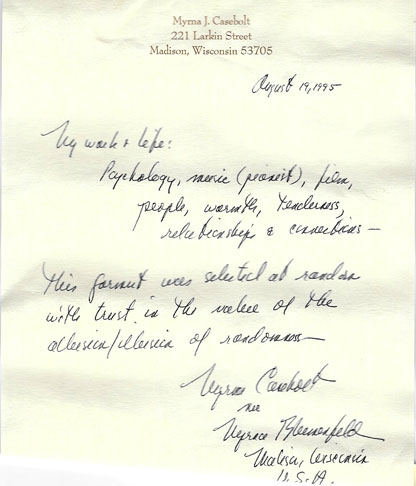 Myrna J. Casebolt
221 Larkin Street
Madison, Wisconsin 53705
August 19, 1995
My work & life:
Psychology, music (pianist), film,
people, warmth, tenderness,
relationships & connections —
This format was selected at random
with trust in the value of the
allusion/illusion of randomness —
Myrna Casebolt
nee
Myrna Blumenfeld
Madison, Wisconsin
U.S.A.